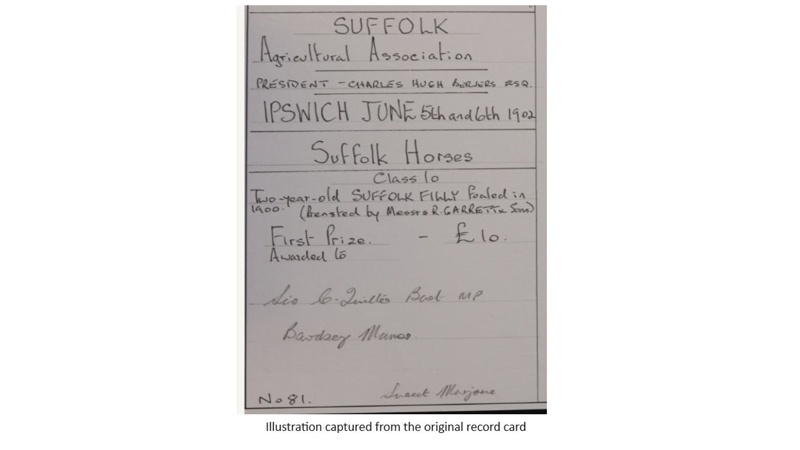 SUFFOLK
Agricultural Association
PRESIDENT - CHARLES HUGH BERNERS ESQ.
IPSWICH JUNE 5th and 6th 1902
Suffolk Horses
Class 10
Two-year-old SUFFOLK FILLY foaled in
1900. (Presented by Messrs R. GARRETT & Sons)
First Prize. - £10.
Awarded to
Sir C. Quilter Bart MP
Bawdsey Manor
No 81. Sweet Marjorie
Illustration captured from the original record card